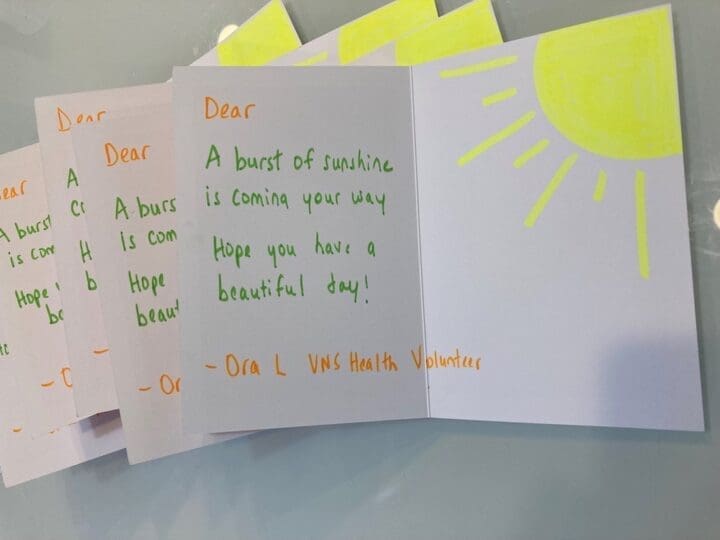 Dear
A burst of sunshine
is coming your way
Hope you have a
beautiful day!
- Ora L VNS Health Volunteer
Dear
A burs
is com
Hope
beaut
- Or
Dear
A
H
b
-
ear
A burst
is com
Hope
be
- O